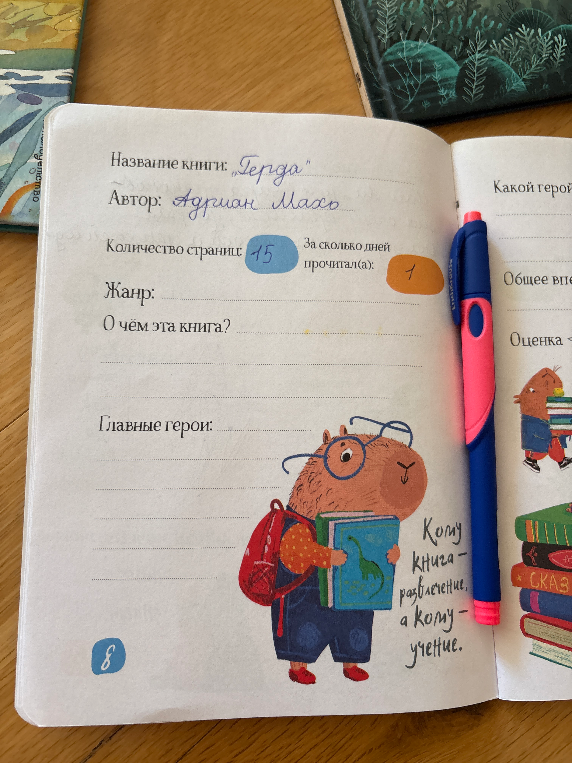 Название книги: „Герда"
Автор: Адриан Махо
Количество страниц: 15
За сколько дней
прочитал(а): 1
Жанр:
О чём эта книга?
Главные герои:
Кому
книга –
развлечение,
а кому –
учение.
8
Какой герой
Общее впе
Оценка
СКАЗ